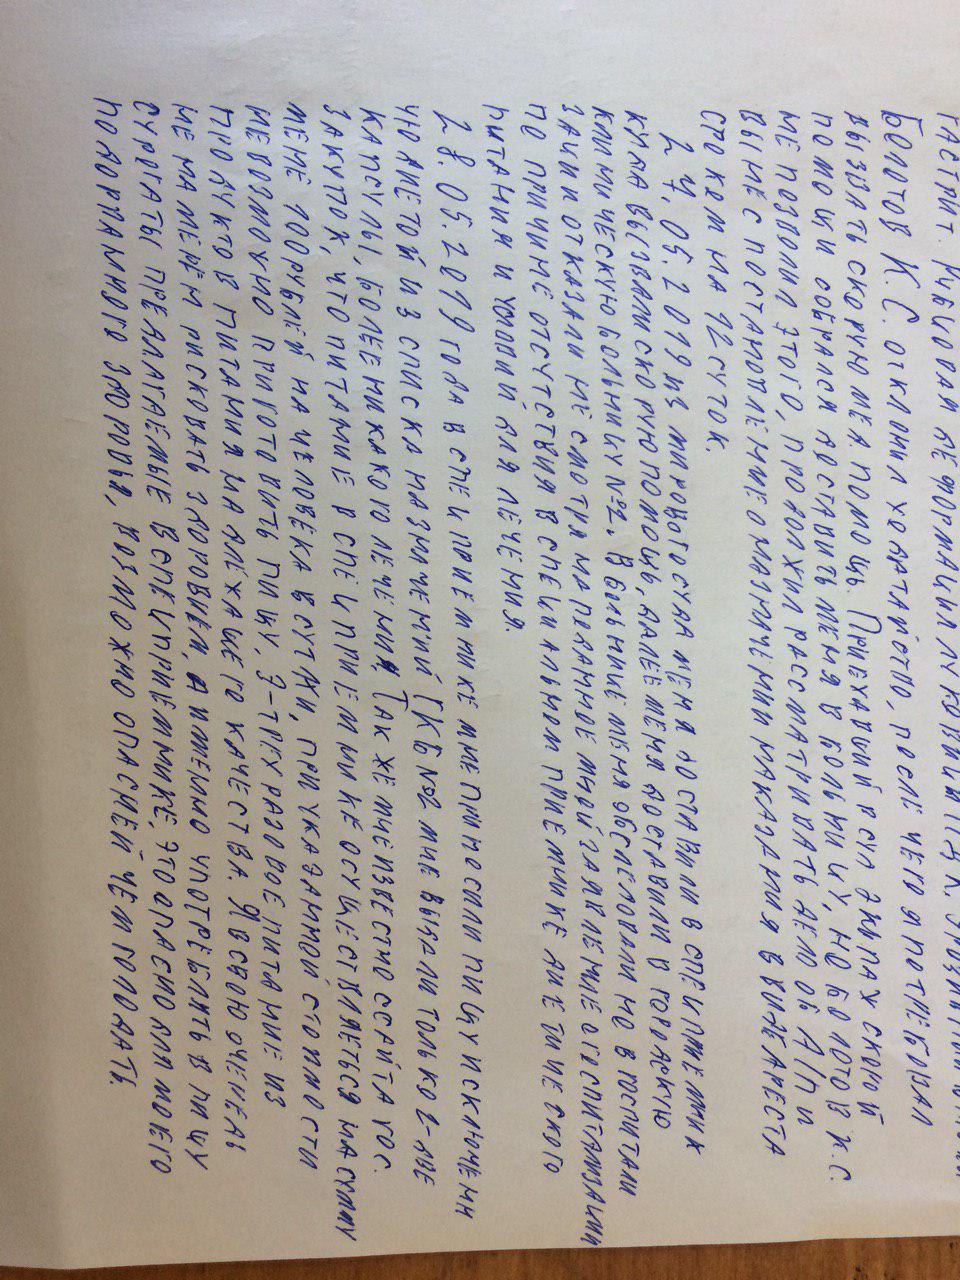 гастрит. рубцовая деформация луковицы
Болотов К.С. отклонил ходатайство, после чего я потребовал
вызвать скорую мед помощь. Приехавший в суд экипаж скорой
помощи собирался доставить меня в больницу, но Болотов К.С.
не позволил этого, продолжил рассматривать дело об А/п и
вынес постановление о назначении наказания в виде ареста
сроком на 12 суток.
24.05.2019 из мирового суда меня доставили в спецприемник
куда вызвали скорую помощь, далее меня доставили в городскую
клиническую больницу №2. В больнице меня обследовали но в госпитали
зации отказали не смотря на поданное мной заявление о госпитализации
по причине отсутствия в специальном приемнике диетического
питания и условий для лечения.
28.05.2019 года в спецприемнике мне приносили пищу исключен
ую диетой из списка назначений ГКБ №2 мне выдали только 2-две
капсулы, более никакого лечения. Так же мне известно с сайта гос.
закупок, что питание в спецприемнике осуществляеться на сумму
менее 100 рублей на человека в сутки, при указанной стоимости
невозможно приготовить пищу, 3-трех разовое питание из
продуктов питания надлежащего качества. Я в свою очередь
не намерен рисковать здоровьем, а именно употреблять в пищу
суррогаты предлагаемые в спецприемнике, это опасно для моего
подорванного здоровья, возможно опасней чем голодать.